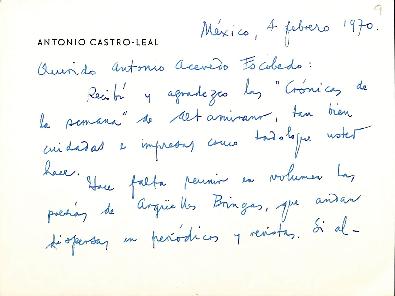 9
México, 4 febrero 1970.
ANTONIO CASTRO-LEAL
Querido Antonio Acevedo Escobedo:
Recibí y agradezco las "Crónicas de
la semana" de Altamirano, tan bien
cuidadas e impresas como todo lo que usted
hace.
Hace falta reunir en volumen las
poesías de Argüelles Bringas, que andan
dispersas en periódicos y revistas. Si al-